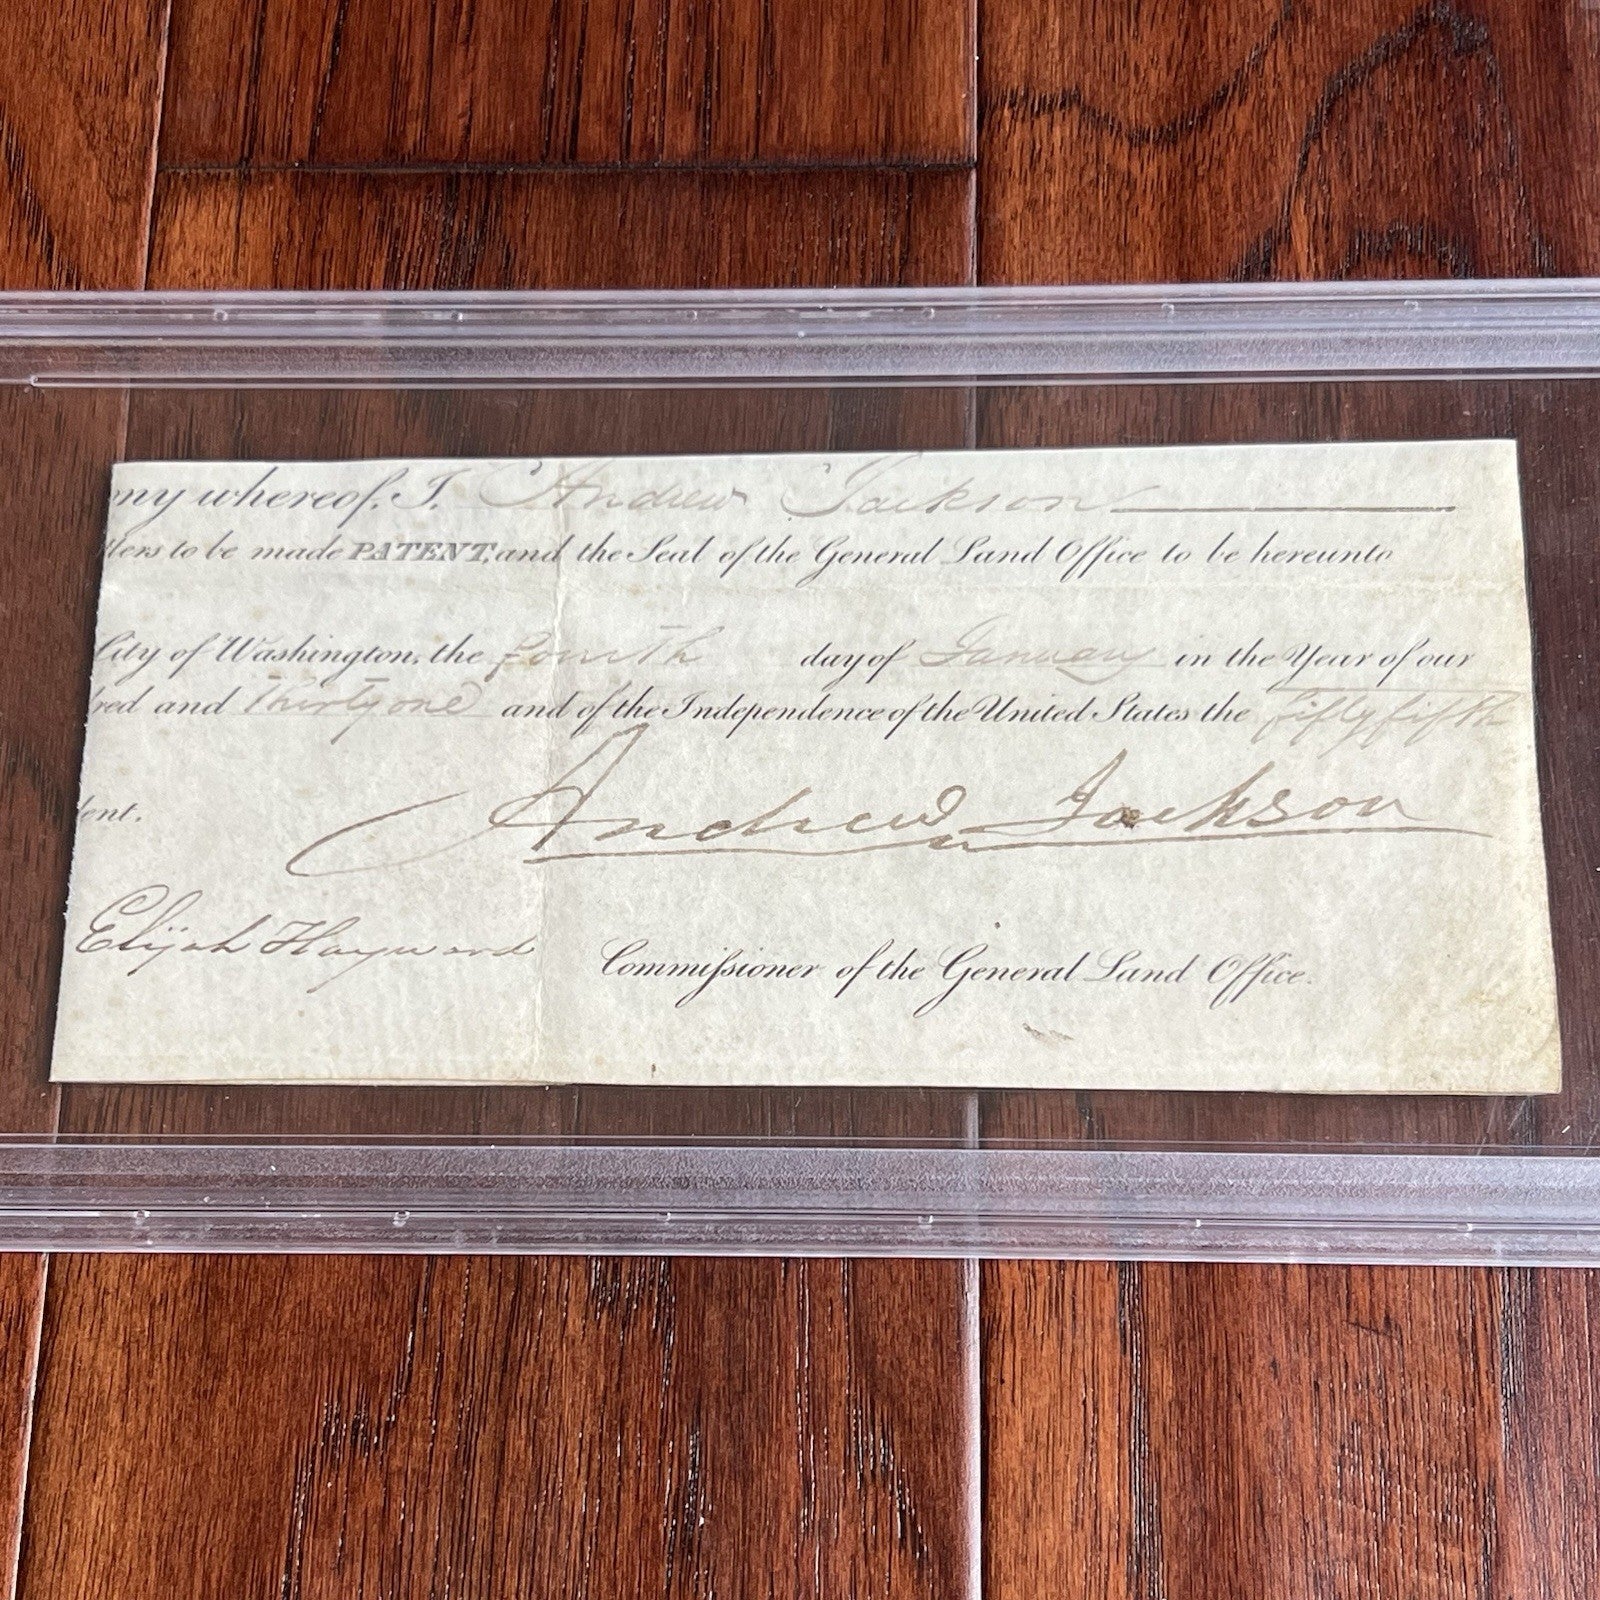 ny whereof, I, Andrew Jackson
tters to be made PATENT, and the Seal of the General Land Office to be hereunto
City of Washington, the fourth day of January in the Year of our
red and thirty one and of the Independence of the United States the fifty fifth
ent.
Andrew Jackson
Elijah Hayward Commissioner of the General Land Office.